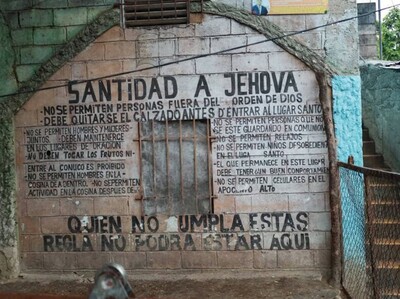 SANTIDAD A JEHOVA
-NO SE PERMITEN PERSONAS FUERA DEL ORDEN DE DIOS
DEBE QUITARSE EL CALZADO ANTES D'ENTRAR AL LUGAR SANTO
-NO SE PERMITEN HOMBRES Y MUJERES
JUNTOS
DEBEN MANTENERCE
EN LOS LUGARES DE ORACION
NO DEBEN TOCAR LOS FRUTOS NI
ENTRAR AL CONUCO ES PROIBIDO
-NO SE PERMITEN HOMBRES EN LA
COSINA DE A DENTRO. -NO SE PERMITEN
ACTIVIDAD EN LA COSINA DESPUES DE
-NO SE PERMITEN PERSONAS QUE NO
SE ESTE GUARDANDO EN COMUNION
-NO SE PERMITEN RELAJOS
-NO SE PERMITEN NIÑOS D'ESOBEDIENT
EN EL LUGA SANTO
-EL QUE PERMANECE EN ESTE LUGAR
DEBE TENER UN BUEN COMPORTAMI
-NO SE PERMITEN CELULARES EN EL
APOSENTO ALTO
QUIEN NO CUMPLA ESTAS
REGLA NO PODRA ESTAR AQUI